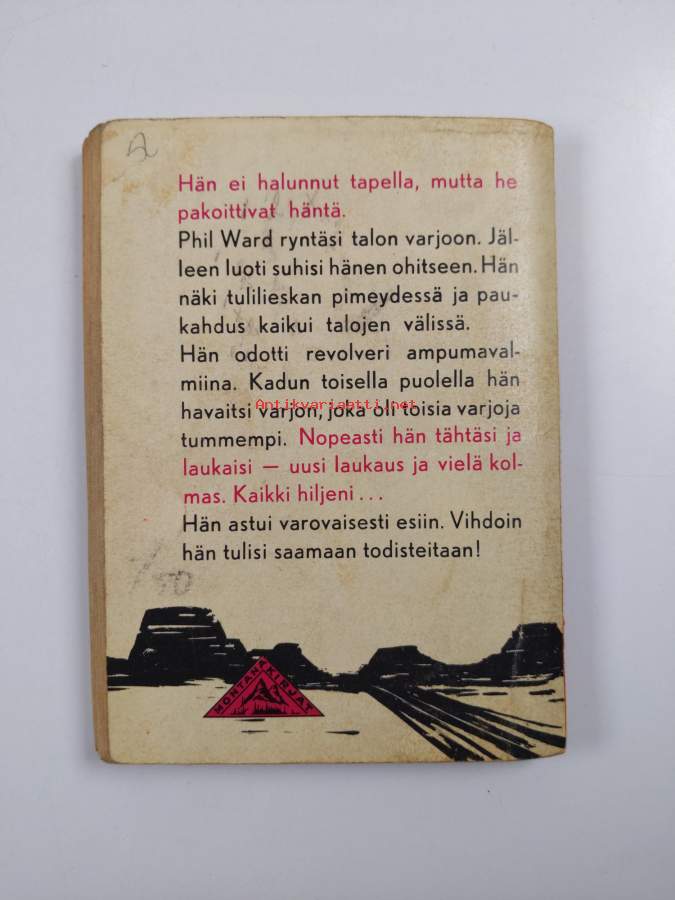 Hän ei halunnut tapella, mutta he
pakoittivat häntä.
Phil Ward ryntäsi talon varjoon. Jäl-
leen luoti suhisi hänen ohitseen. Hän
näki tulilieskan pimeydessä ja pau-
kahdus kaikui talojen välissä.
Hän odotti revolveri ampumaval-
miina. Kadun toisella puolella hän
Antikvariaatti.net
havaitsi varjon, joka oli toisia varjoja
tummempi. Nopeasti hän tähtäsi ja
laukaisi — uusi laukaus ja vielä kol-
mas. Kaikki hiljeni...
Hän astui varovaisesti esiin. Vihdoin
hän tulisi saamaan todisteitaan!
MONTANAKIRJAT